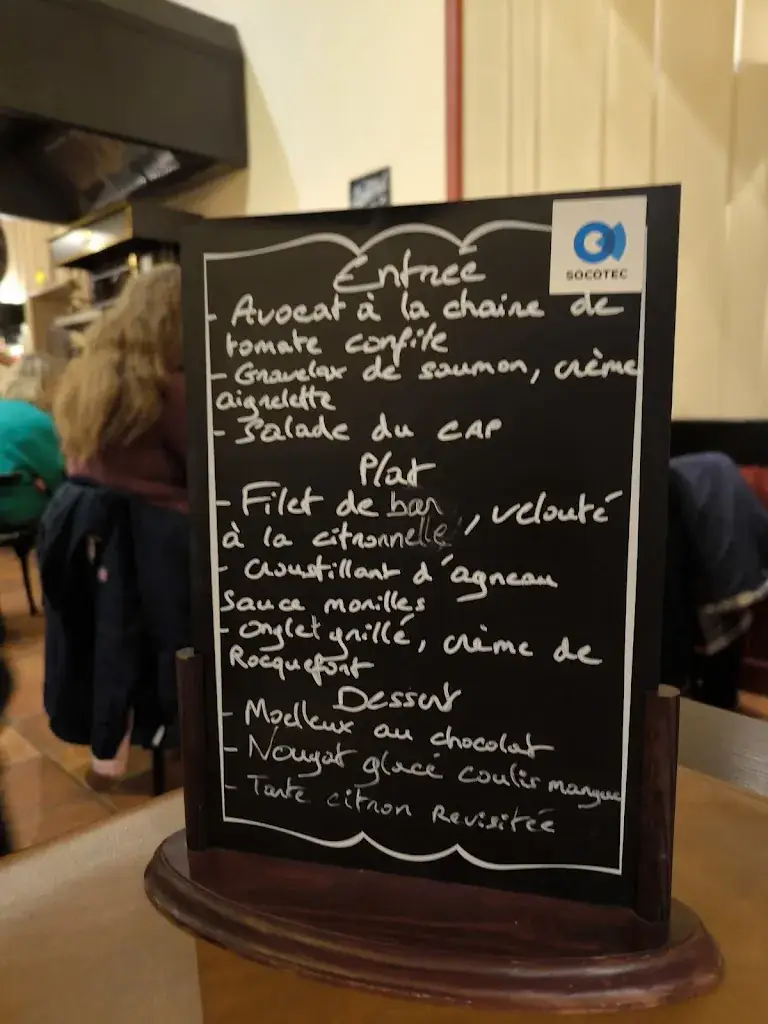 SOCOTEC
Entrée
- Avocat à la chaire de
tomate confite
- Gravelax de saumon, crème
aigrelette
- Salade du CAP
Plat
- Filet de bar, velouté
à la citronnelle
- Croustillant d'agneau
sauce morilles
- Onglet grillé, crème de
Rocquefort
Dessert
- Moelleux au chocolat
- Nougat glacé coulis mangue
- Tarte citron Revisitée